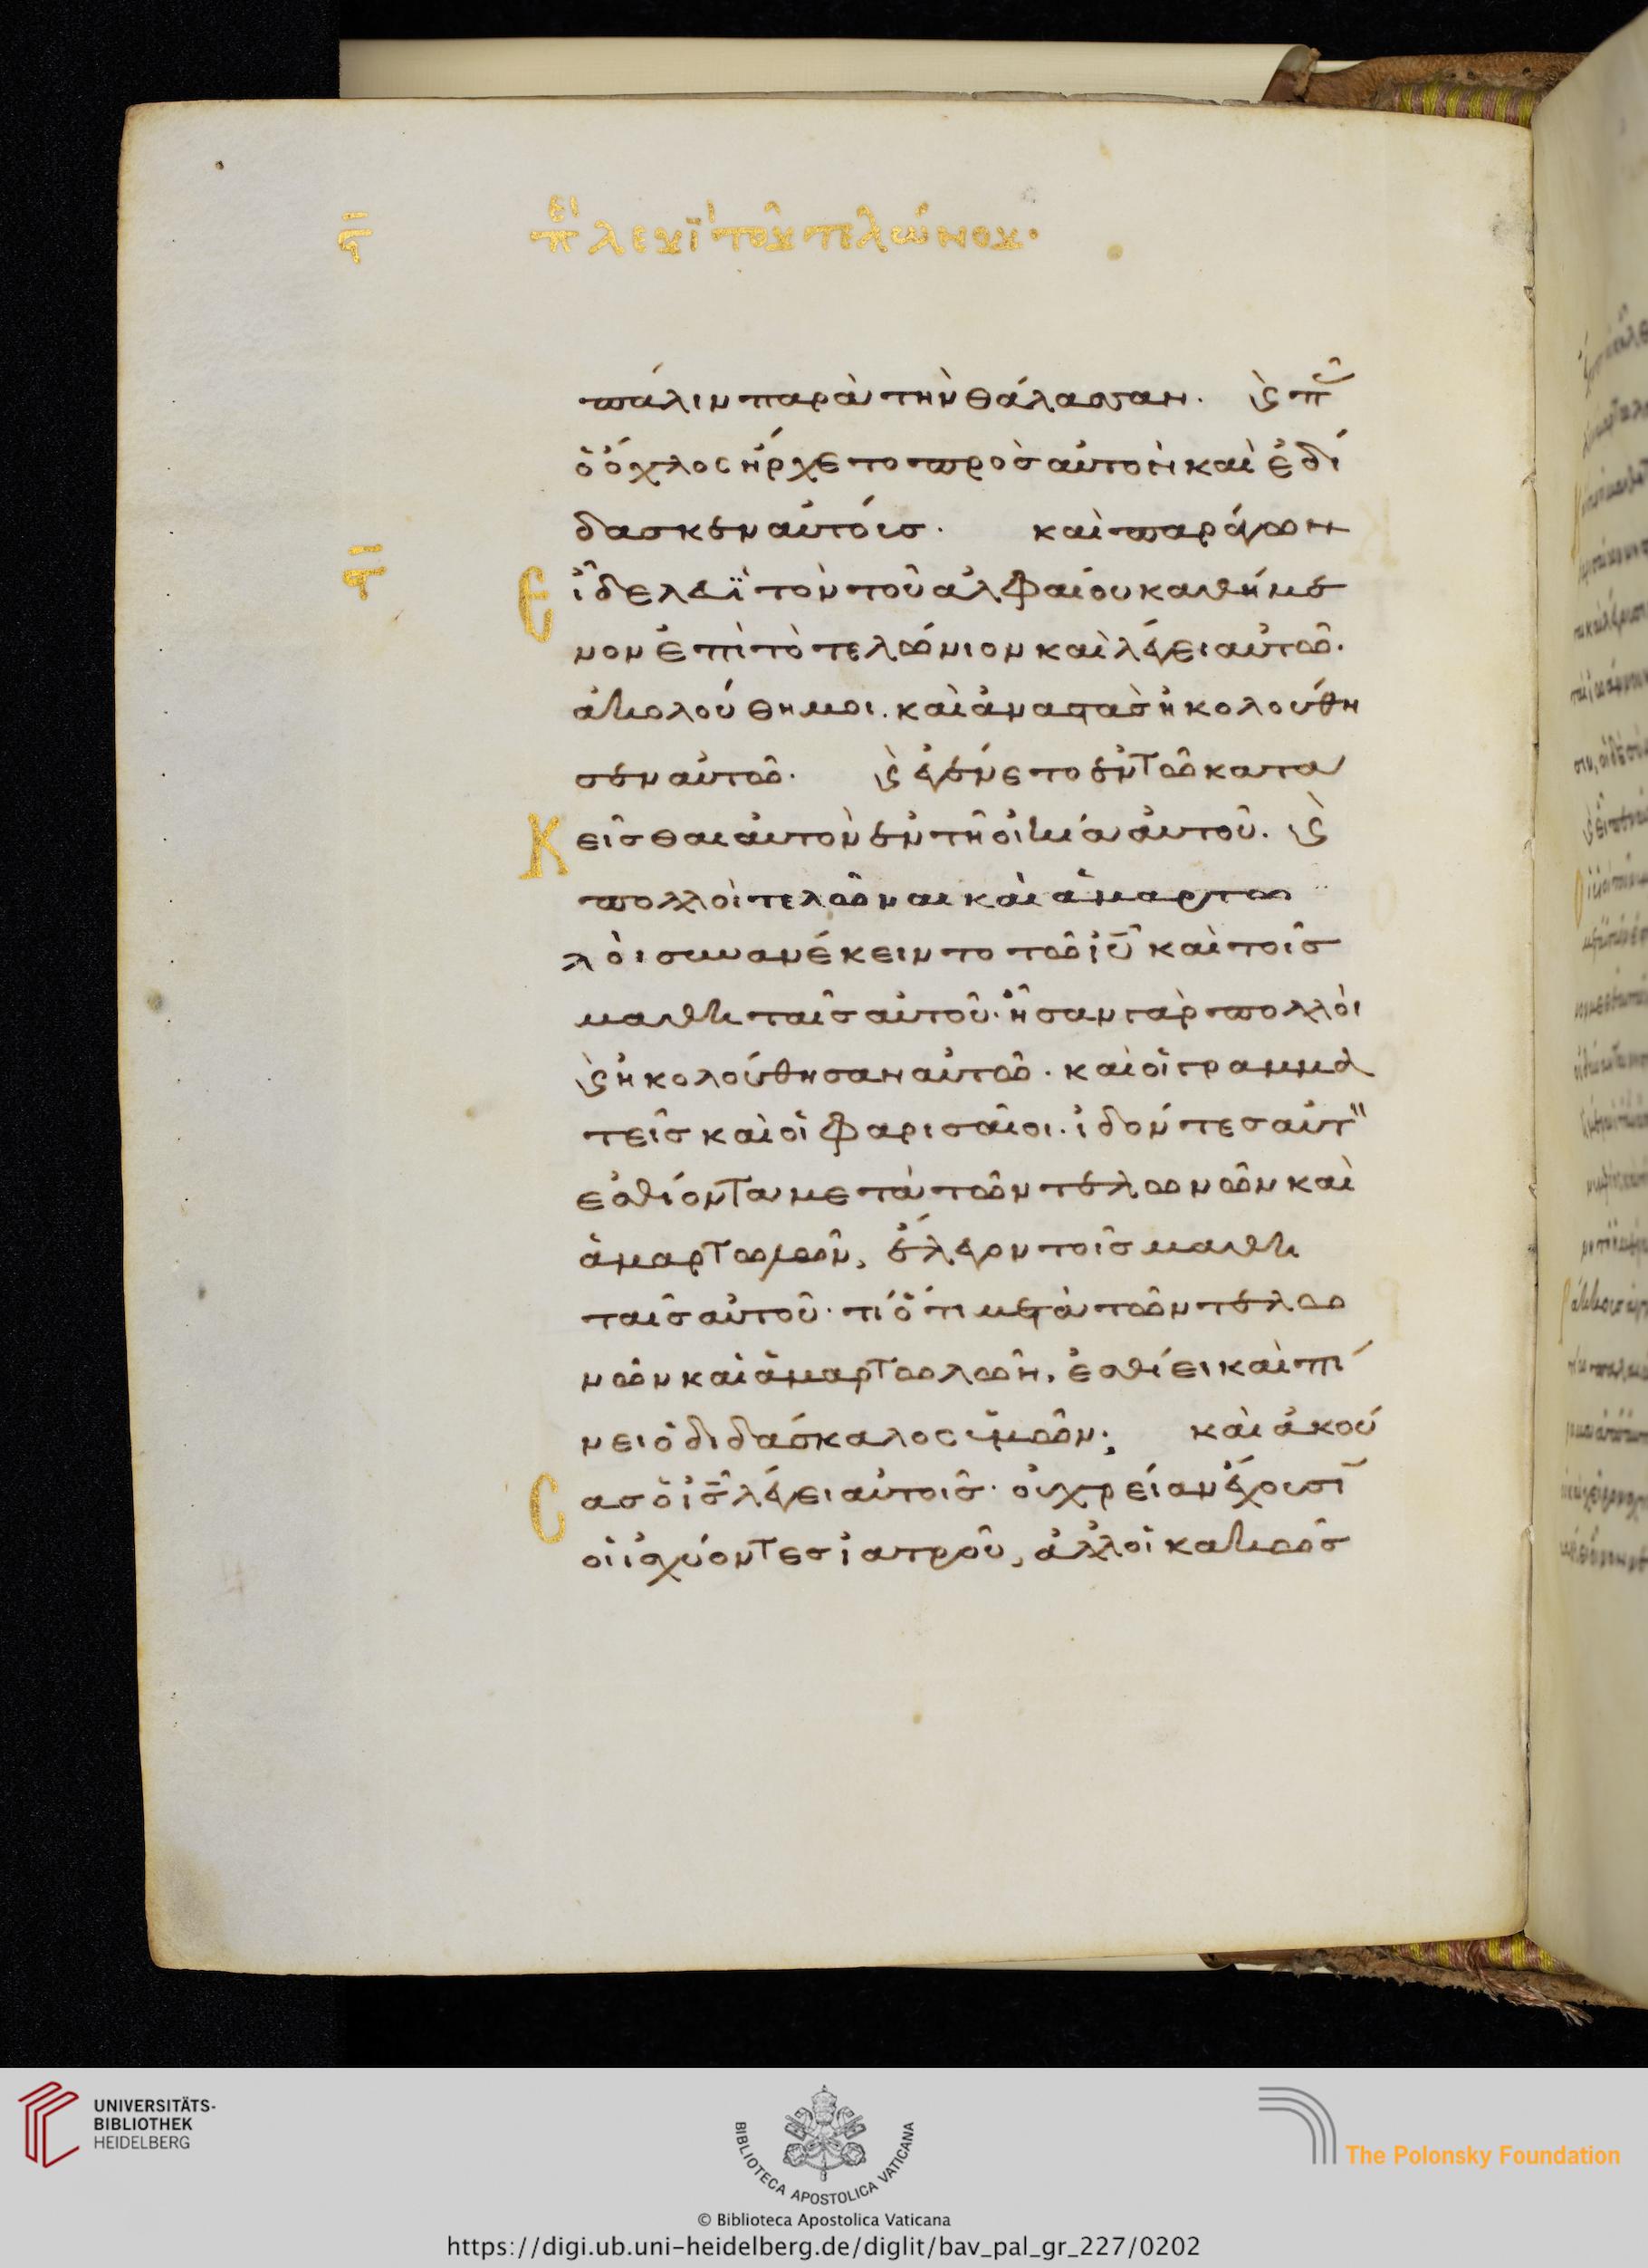 ϛ̄ πε̣ρὶ λευῒ τοῦ τελώνου·
πάλιν παρὰ τὴν θάλασσαν. ϗ̀ π̃
ὁ ὄχλος ἤρχετο πρὸσ αὐτὸν καὶ ἐδί
δασκεν αὐτόισ. καὶ παράγων
ϛ̄
Ε ἶδε λευῒ τὸν τοῦ ἀλφαίου καθήμε
νον ἐπὶ τὸ τελώνιον καὶ λέγει αὐτῶ.
ἀκολούθη μοι. καὶ ἀναστὰσ ἠκολούθη
σεν αὐτῶ. ϗ̀ ἐγένετο ἐν τῶ κατα
Κ εῖσθαι αὐτὸν ἐν τῆ οἰκία αὐτοῦ. ϗ̀
πολλοὶ τελῶναι καὶ ἁμαρτω
λὸι συνανέκειντο τῶ ἰῦ καὶ τοῖσ
μαθηταῖσ αὐτοῦ· ἦσαν γὰρ πολλὸι
ϗ̀ ἠκολούθησαν αὐτῶ. καὶ οἱ γραμμα
τεῖσ καὶ οἱ φαρισαῖοι. ἰδόντεσ αὐτ
ἐσθίοντα μετὰ τῶν τελωνῶν καὶ
ἁμαρτωλῶν, ἔλεγον τοῖσ μαθη
ταῖσ αὐτοῦ· τί ὅτι μετὰ τῶν τελω
νῶν καὶ ἁμαρτωλῶν, ἐσθίει καὶ πί
νει ὁ διδάσκαλος ὑμῶν; καὶ ἀκού
C ασ ὁ ἰσ̄ λέγει αὐτοῖσ· οὐ χρείαν ἔχουσῑ
οἱ ἰσχύοντεσ ἰατροῦ, ἀλλ οἱ κακῶσ
UNIVERSITÄTS-
BIBLIOTHEK
HEIDELBERG
BIBLIOTECA APOSTOLICA VATICANA
The Polonsky Foundation
© Biblioteca Apostolica Vaticana
https://digi.ub.uni-heidelberg.de/diglit/bav_pal_gr_227/0202